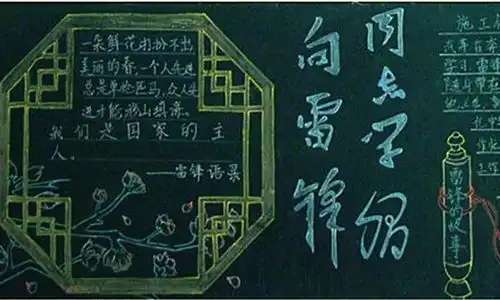 一朵鲜花打扮不出
美丽的春,一个人先进
总是单枪匹马,众人先
进才能移山填海。
我们是国家的主
人。
——雷锋语录
向雷锋
同志学习
雷锋的故事
施工
学习,雷锋